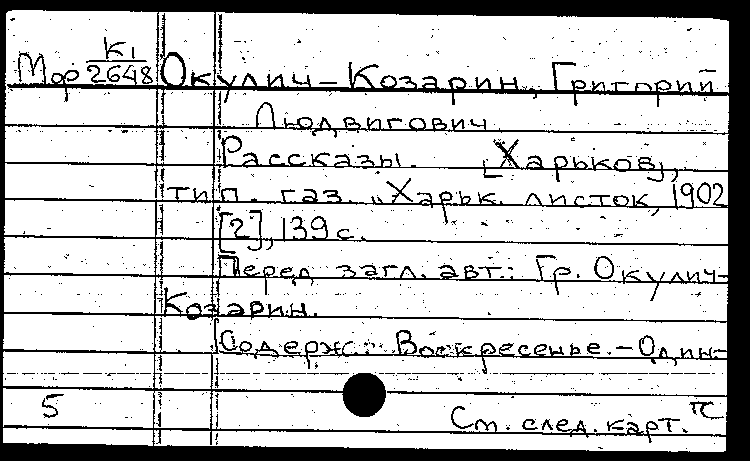 Мор К1/2648 Окулич-Козарин, Григорий
Людвигович
Рассказы. [Харьков],
тип. газ. „Харьк. листок, 1902
[2], 139 с.
Перед загл. авт.: Гр. Окулич-
Козарин.
Содерж.: Воскресенье. - Один-
5
См. след. карт.